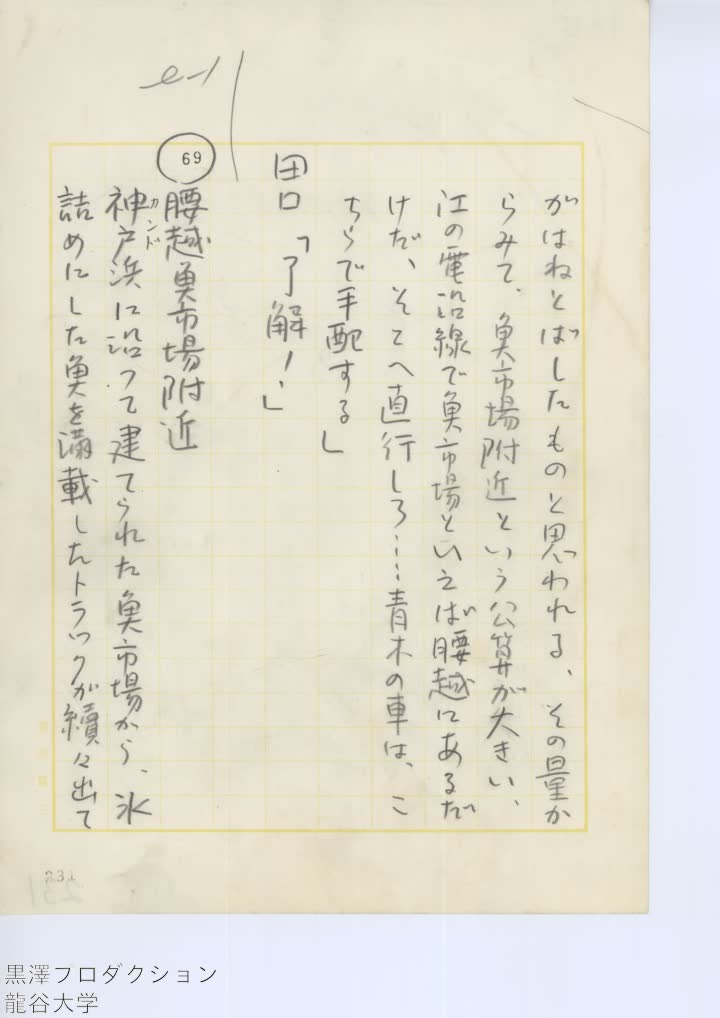 がはねとばしたものと思われる、その量か
らみて、魚市場附近という公算が大きい、
江の電沿線で魚市場といえば腰越にあるだ
けだ、そこへ直行しろ…青木の車は、こ
ちらで手配する」
田口「了解！」
69
腰越魚市場附近
神戸浜に沿って建てられた魚市場から、氷
カンド
詰めにした魚を満載したトラックが續々出て
231
黒澤プロダクション
龍谷大学